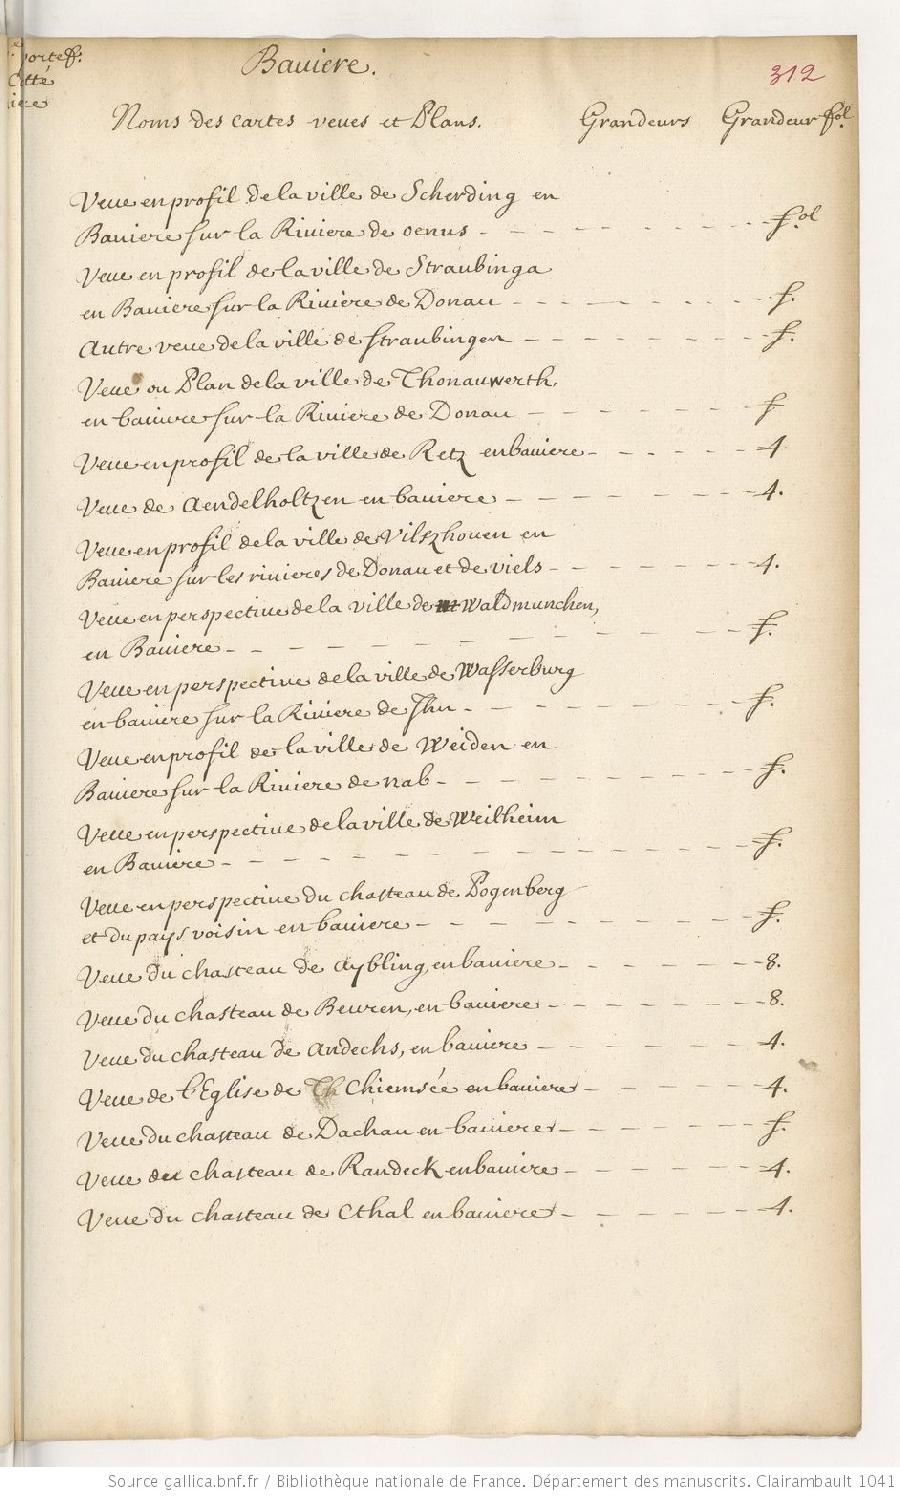 portef.
Cotté
Baviere.
312
Noms des cartes veues et Plans. Grandeurs Grandeur fol.
Veue en profil de la ville de Scherding en
Baviere sur la Riviere de oenus - fol.
Veue en profil de la ville de Straubinga
en Baviere sur la Riviere de Donau - f.
Autre veue de la ville de straubingen - f.
Veue ou Plan de la ville de Thonauwerth,
en baviere sur la Riviere de Donau - f
Veue en profil de la ville de Retz en baviere - 4
Veue de Aendelholtzen en baviere - 4.
Veue en profil de la ville de Vilszhouen en
Baviere sur les rivieres de Donau et de viels - 4.
Veue en perspective de la ville de Waldmunchen,
en Baviere - f.
Veue en perspective de la ville de Wasserburg
en baviere sur la Riviere de Jhn - f.
Veue en profil de la ville de Weiden en
Baviere sur la Riviere de nab - f.
Veue en perspective de la ville de Weilheim
en Baviere - f.
Veue en perspective du chasteau de Pogenberg
et du pays voisin en baviere - f.
Veue du chasteau de Aybling, en baviere - 8.
Veue du chasteau de Beuren, en baviere - 8.
Veue du chasteau de Andechs, en baviere - 4.
Veue de l'Eglise de Chiemsée en baviere - 4.
Veue du chasteau de Dachau en baviere - f.
Veue du chasteau de Randeck en baviere - 4.
Veue du chasteau de Ethal en baviere - 4.
Source gallica.bnf.fr / Bibliothèque nationale de France. Département des manuscrits. Clairambault 1041